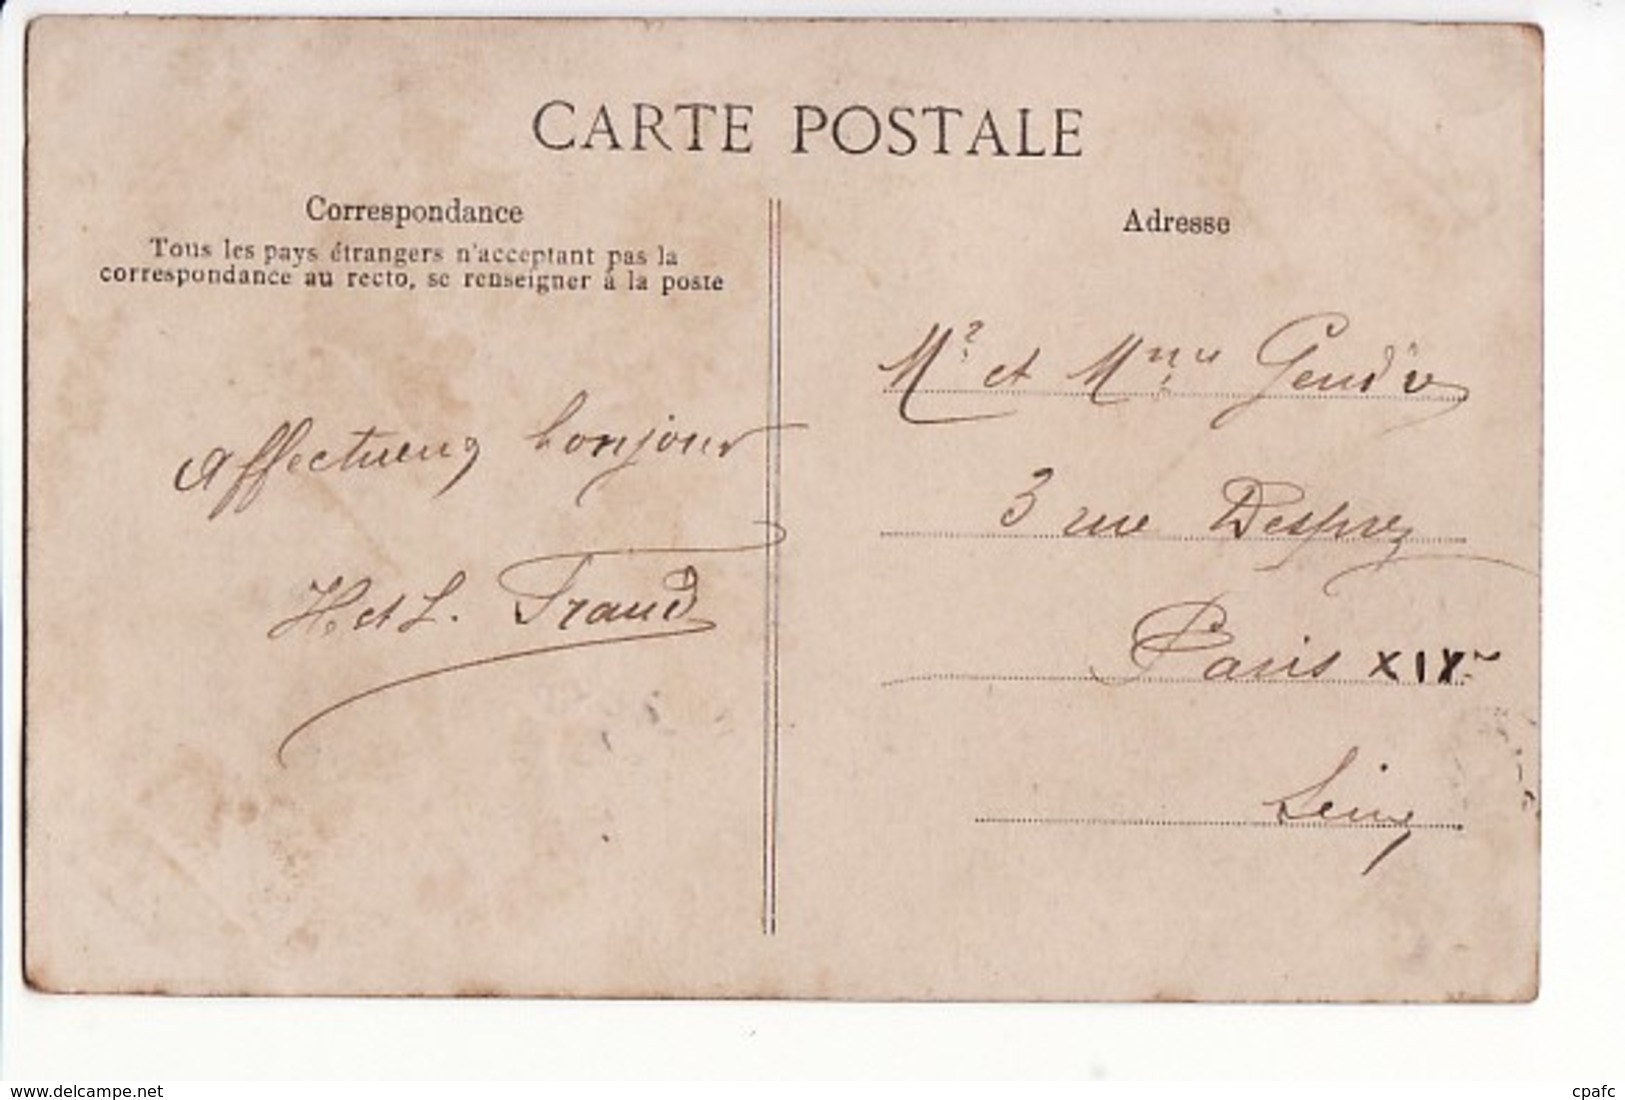 CARTE POSTALE
Correspondance
Tous les pays étrangers n'acceptant pas la
correspondance au recto, se renseigner à la poste
Affectueux bonjour
H. et L. Fraud
Adresse
Mr et Mme Gendre
3 rue Desprez
Paris XIXe
Seine
www.delcampe.net
cpafc